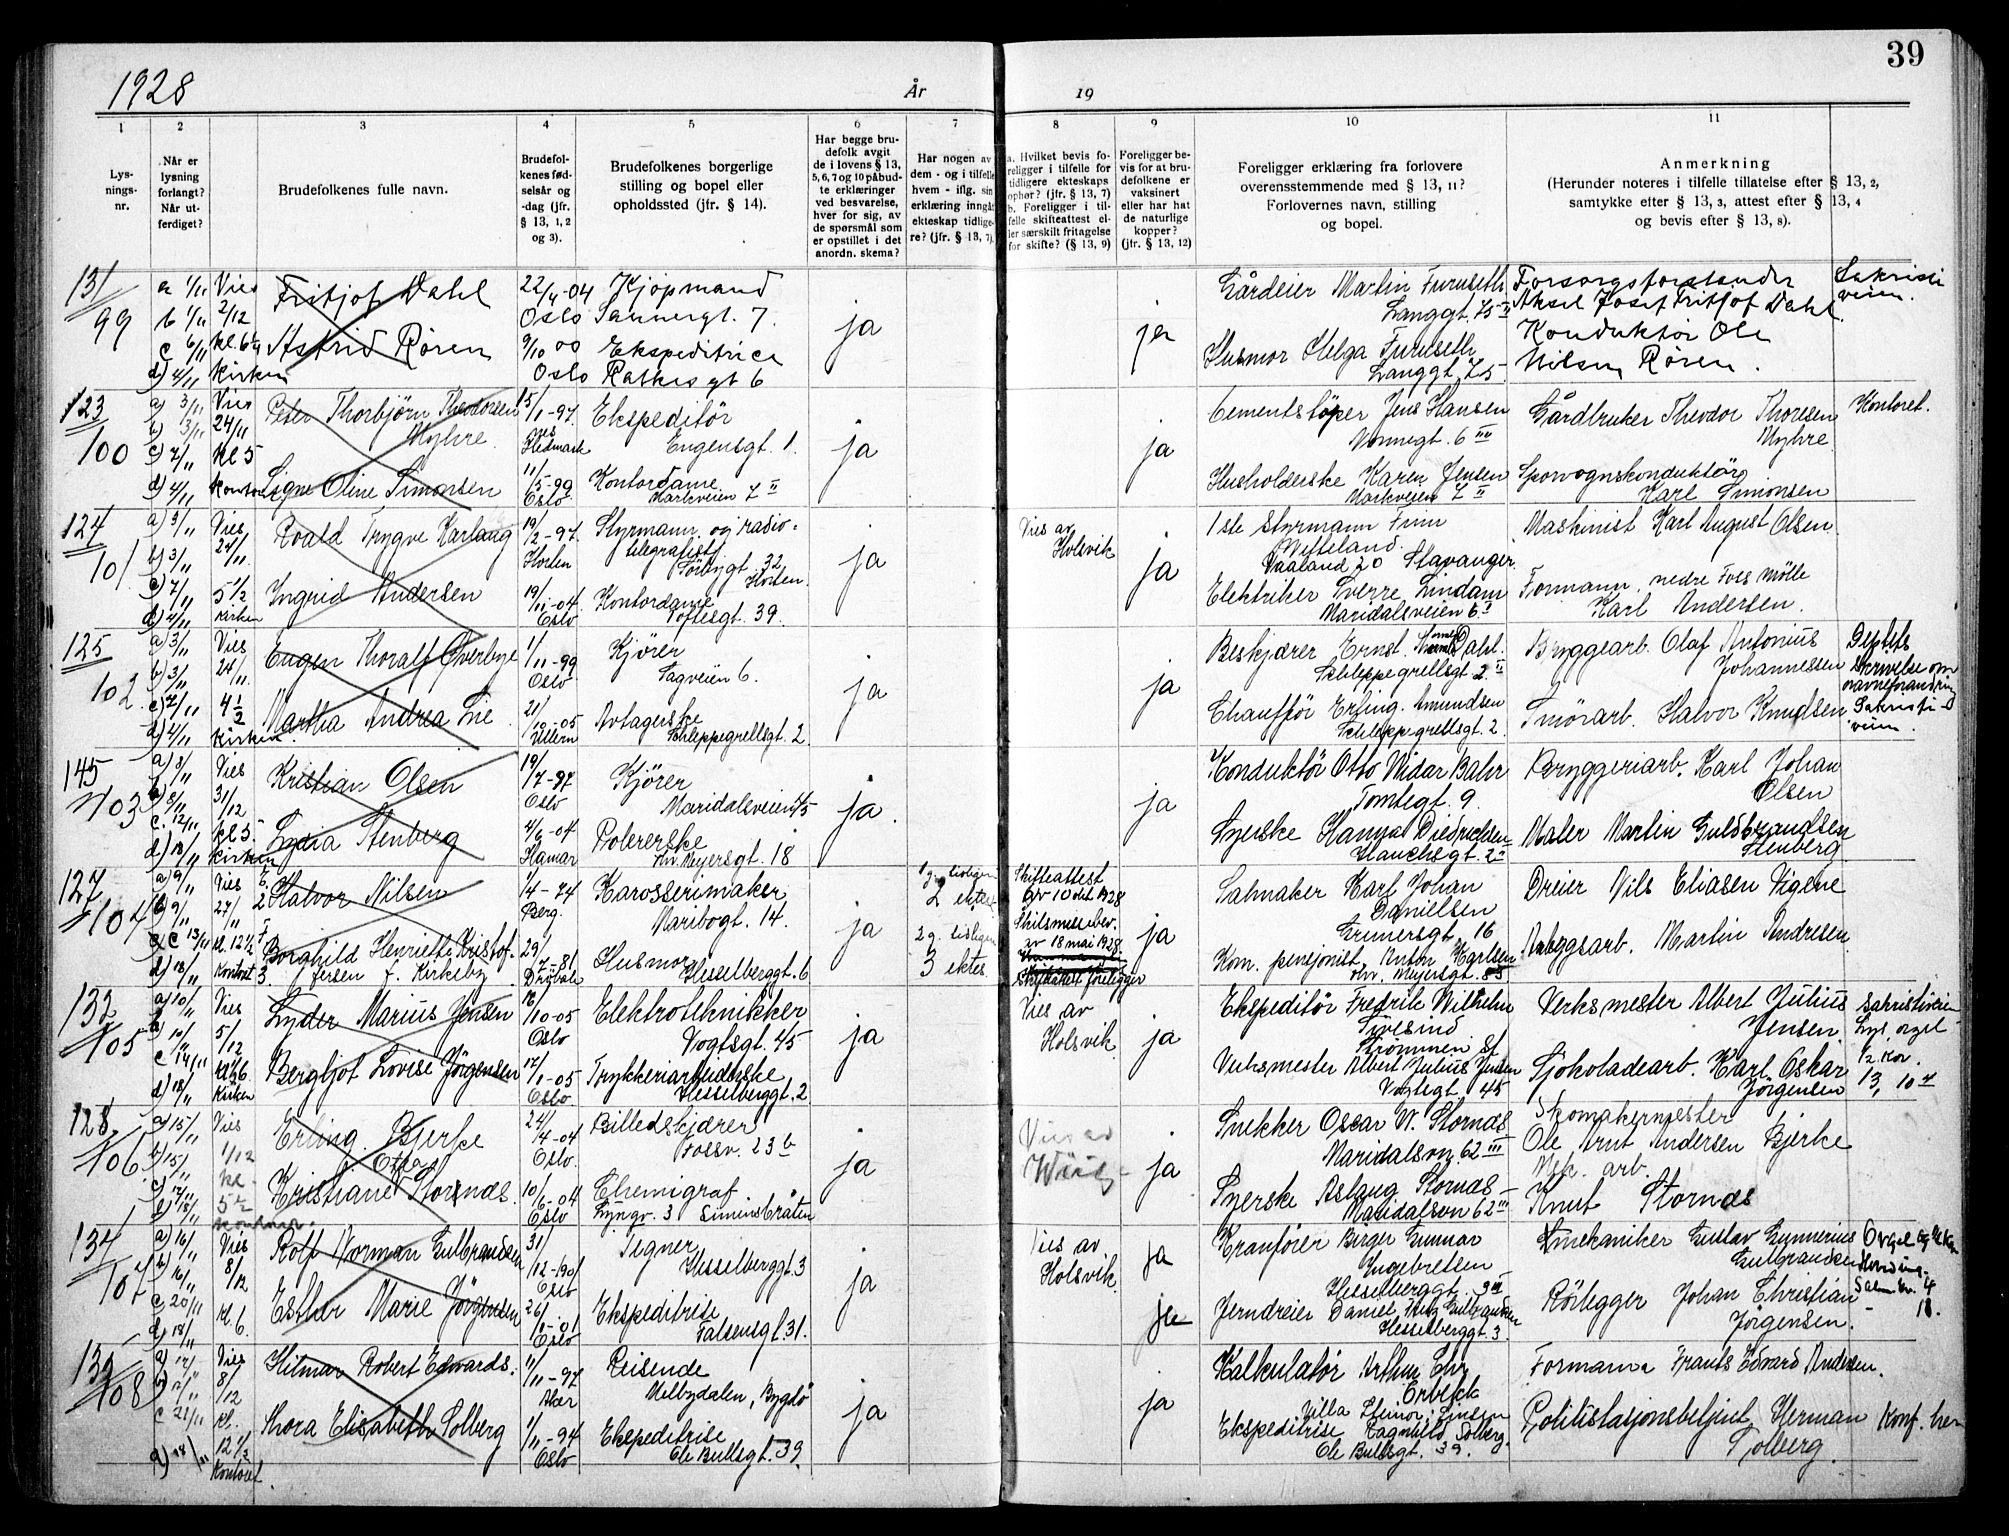 39
1928
År
19
1
2
3
4
5
6
7
8
9
10
11
Lys-
nings-
nr.
Når er
lysning
forlangt?
Når ut-
ferdiget?
Brudefolkenes fulle navn.
Brudefol-
kenes fød-
selsår og
-dag (jfr.
§ 13, 1, 2
og 3).
Brudefolkenes borgerlige
stilling og bopel eller
opholdssted (jfr. § 14).
Har begge bru-
defolk avgit
de i lovens § 13,
5, 6, 7 og 10 påbud-
te erklæringer
ved besvarelse,
hver for sig, av
de spørsmål som
er opstillet i det
anordn. skema?
Har nogen av
dem - og i tilfelle
hvem - iflg. sin
erklæring inngåt
ekteskap tidlige-
re? (jfr. § 13, 7).
a. Hvilket bevis fo-
religger i tilfelle for
tidligere ekteskaps
ophør? (jfr. § 13, 7)
b. Foreligger i til-
felle skifteattest el-
ler særskilt fritagelse
for skifte? (§ 13, 9)
Foreligger be-
vis for at bru-
defolkene er
vaksinert
eller har hat
de naturlige
kopper?
(jfr. § 13, 12)
Foreligger erklæring fra forlovere
overensstemmende med § 13, 11?
Forlovernes navn, stilling
og bopel.
Anmerkning
(Herunder noteres i tilfelle tillatelse efter § 13, 2,
samtykke efter § 13, 3, attest efter § 13, 4
og bevis efter § 13, 8).
131
99
a 1/11 Vies
b 1/11 2/12
c 6/11 kl. 6 1/4
d) 4/11 Kirken
Fritjof Dahl
Astrid Røren
22/4-04
Oslo
9/10 00
Oslo
Kjøpmand
Sannergt. 7.
Ekspeditrice
Ratkes gt 6
ja
ja
Gårdeier Martin Furuseth
Langgt. 75 II
Husmor Helga Furuseth
Langgt. 75
Forsorgsforstander
Aksel Josef Fritjof Dahl.
Konduktør Ole
Nilsen Røren.
Sakristi
veien.
123
100
a) 3/11 Vies
b) 3/11 24/11
c) 7/11 kl 5
d) 4/11 kontor
Peter Thorbjörn Theodorsen
Myhre.
Signe Oline Simonsen
15/1-97.
Hedmark
11/5-99
Oslo
Ekspeditör
Eugensgt. 1.
Kontordame
Markveien 7 II
ja
ja
Cementstöper Jens Hansen
Vonnegt. 6 III
Husholderske Karen Jensen
Markveien 7 II
Gårdbruker Theodor Thoresen
Myhre
Sporvognskonduktör
Karl Simonsen
Kontoret.
124
101
a) 3/11 Vies
b) 3/11 24/11
c) 7/11 5 1/2
d) 4/11 Kirken
Roald Trygve Karlaug
Ingrid Andersen
19/2-97.
Horten
19/11-04
Oslo
Styrmann og radio-
telegrafist
Sörbygt. 32
Horten.
Kontordame
Toftesgt. 39.
ja
Vies av
Holsvik
ja
1ste Styrmann Finn
Vaaland 20 Stavanger
Elektriker Sverre Lindam
Maridalsveien 6 I
Maskinist Karl August Olsen
Formann nedre Foss Mölle
Karl Andersen.
125
102.
a) 3/11 Vies
b) 3/11 24/11
c) 7/11 4 1/2
d) 4/11 Kirken.
Eugen Thoralf Överbye
Martha Andrea Lie
1/11-99
Oslo
21/10-05
Ullern
Kjörer
Sagveien 6.
Avtagerske
Schleppegrellsgt. 2.
ja
ja
Beskjærer Ernst Dahl.
Schleppegrellsgt 2 II
Chauffør Erling Amundsen
Schleppegrellsgt. 2.
Bryggearb. Olaf Antonius
Johannessen
Smörarb. Halvor Knudsen
Deptets
skrivelse om
navneforandring
Sakristi-
veien.
145
103
a) 3/11 Vies
b) 3/11 31/12
c. 12/11 kl 5
d) 18/11 Kirken
Kristian Olsen
Lydia Stenberg
19/7-97
Oslo
4/6-04
Hamar
Kjörer
Maridalsveien 45
Polererske
Thv. Meyersgt. 18
ja.
ja
Konduktör Otto Vidar Bahr
Tomtegt. 9.
Syerske Hanna Diedrichsen
Hauchsgt. 2 II
Bryggeriarb. Karl Johan
Olsen
Maler Martin Guldbrandsen
Stenberg
127
104
a) 9/11 Vies
b) 9/11 27/11
c 13/11 kl. 12 1/2
d) 18/11 Kontoret
E.
2
F.
3.
Halvor Nilsen
Borghild Henriette Kristof-
fersen f. Kirkeby
1/4-74
Berg.
29/7-81
Dröbak
Karosserimaker
Maribogt. 14.
Husmor
Hesselberggt. 6
ja
1 g. tidligere
2 ektes
2 g. tidligere
3 ektes.
Skifteattest
av 10 okt. 1928
Skilsmissebev.
av 18 mai 1928
Skifteattest foreligger
ja
Salmaker Karl Johan
Danielsen
Grünersgt. 16
Kom. pensjonist Anton Karlsen
Thv. Meyersgt. 85
Dreier Nils Eliasen Vigene
Anleggsarb. Martin Andresen
132
105
a) 10/11 Vies
b) 10/11 5/12
c 14/11 kl 1/2 6
d) 18/11 Kirken
Lyder Marius Jensen
Bergljot Lovise Jörgensen
16/10-05
Oslo
17/1-05
Oslo.
Elektrotekniker
Vogtsgt. 45
Trykkeriarbeiderske
Hesselberggt. 2
ja
Vies av
Holsvik
ja
Ekspeditör Fredrik Wilhelm
Tvesind
Strømmen St
Verksmester Albert Julius Jensen
Vogtsgt 45
Verksmester Albert Julius
Jensen.
Sjokoladearb. Karl Oskar
Jörgensen
Sakristiveien
Lys, orgel
12 kor.
13, 10 4
128
106
a) 15/11 Vies
b) 15/11 1/12
c) 17/11 kl.
d) 18/11 5 1/2
kontoret.
Erling Bjerke
Otta
Kristiane Stornæs.
24/4-04
Oslo.
10/6-04
Oslo
Billedskjærer
Fossv. 23 b
Chemigraf
Lyngv. 3 Simensbråten
ja
Vies av
ja
Snekker Oscar W. Stornæs
Maridalsvn. 62 III
Syerske Aslaug Stornæs
Maridalsvn 62 III
Skomakermester
Ole Arnt Andersen Bjerke
Mek. arb.
Knut Stornæs
134
107
a) 16/11 Vies
b) 16/11 8/12
c) 20/11 kl. 6.
d) 18/11
Rolf Norman Gulbrandsen
Esther Marie Jörgensen
31/12-1901
Oslo
26/8-01
Oslo
Tegner
Hesselberggt. 3
Ekspeditrise
Falsensgt. 31.
ja
Vies av
Holsvik
ja
ja
Kranförer Birger Gunnar
Ingebretsen
Hesselberggt. 9 III
Jerndreier Daniel Gulbrandsen
Hesselberggt. 3.
Finmekaniker Gustav Gunnerius
Gulbrandsen
Rörlegger Johan Christian
Jörgensen.
Orgel
Salme nr. 4
18.
139
108
a) 17/11 Vies
b) 17/11 8/12
c 21/11 kl.
d) 18/11 12 1/2
Kontoret.
Hilmar Robert Edwards.
Thora Elisabeth Solberg
11/11-97
Aker
1/11-94
Oslo
Reisende
Melbydalen, Bygdö
Ekspeditrise
Ole Bullsgt. 39.
ja
ja
Kalkulatør Arthur Chr
Erbeck
Villa Steinor, Sinsen
Ekspeditrise Ragnhild Solberg.
Ole Bullsgt. 39.
Formann Frants Edvard Andersen.
Politistasjonsbetjent Herman
Solberg.
Konf. her